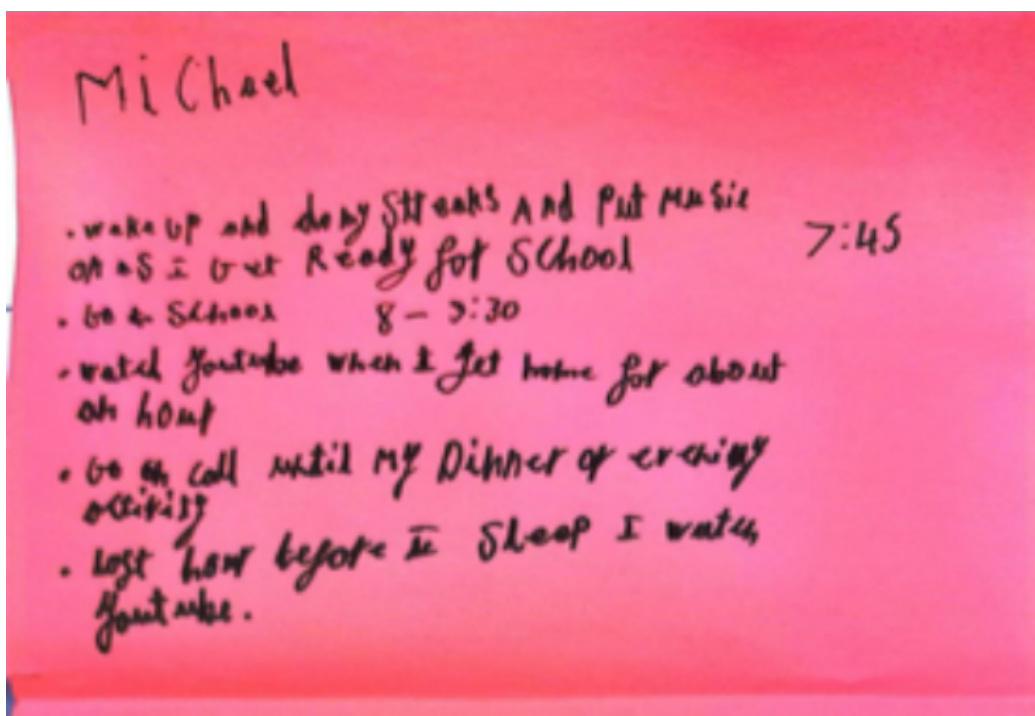 MiChael
• wake up and do my Streaks And Put Music 7:45
on as I Get Ready for School
• Go to School 8 - 3:30
• watch Youtube when I get home for about
an hour
• Go on call until my Dinner or evening
activity
• Last hour before I Sleep I watch
Youtube.